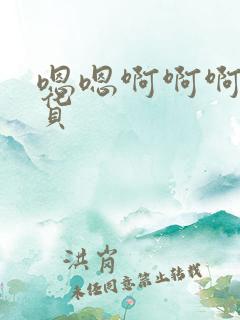 嗯嗯啊啊啊
洪肖
未经同意禁止转载